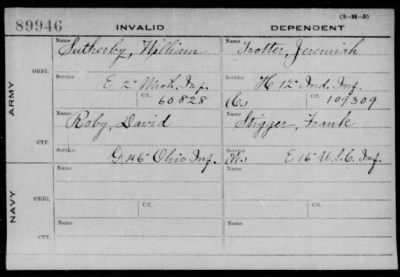 (3-M-5)
89946 INVALID DEPENDENT
ARMY
ORIG.
Name Name
Sutherby, William Trotter, Jeremiah
Service Service
E 2" Mich. Inf. H 12" Ind. Inf.
Ctf. Ctf.
60828 109309
CTF.
Name Name
Roby, David Stigger, Frank
Service Service
G 46" Ohio Inf. E 16" U.S.C. Inf.
NAVY
ORIG.
Name Name
Service Service
Ctf. Ctf.
CTF.
Name Name
Service Service